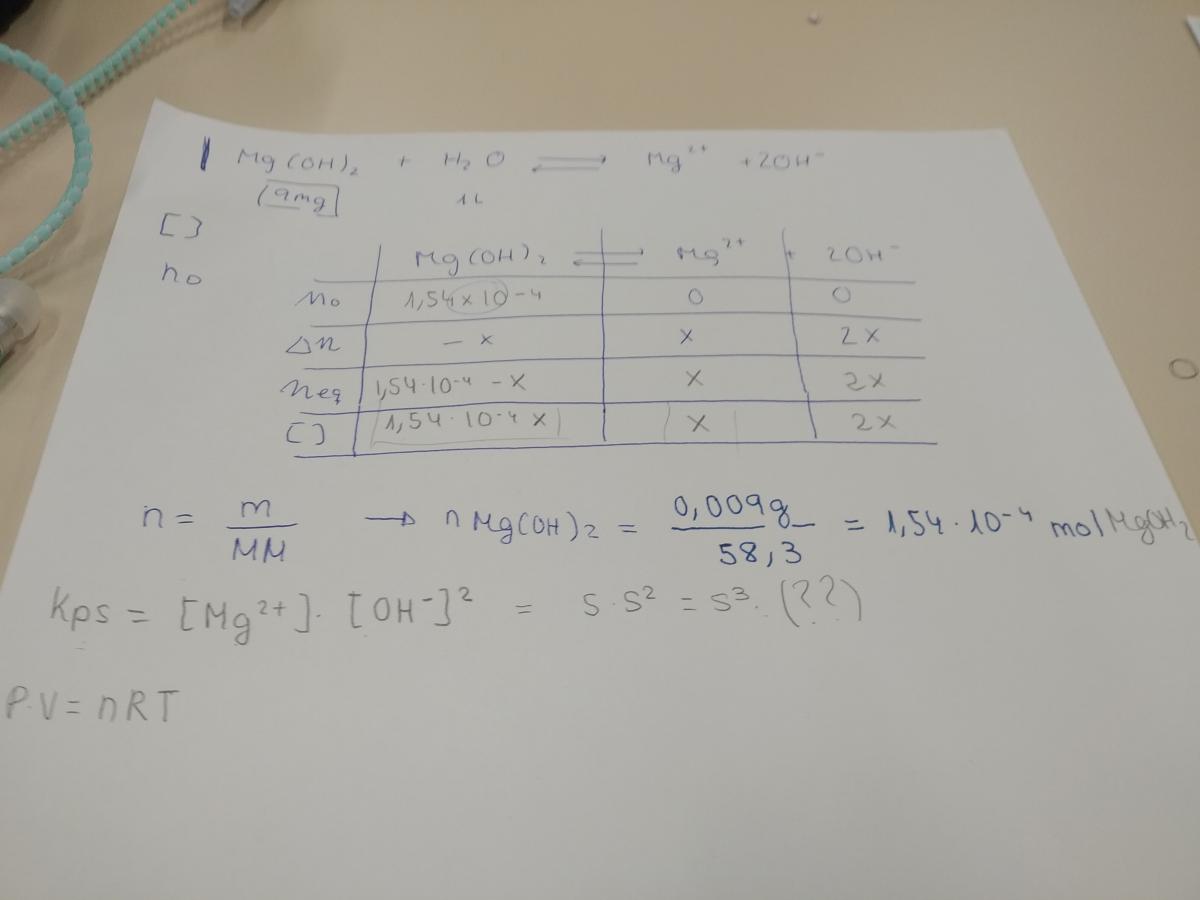 Mg(OH)₂ + H₂O ⇌ Mg²⁺ + 2OH⁻
9mg 1L
[ ]
n₀
Mg(OH)₂ ⇌ Mg²⁺ + 2OH⁻
n₀ 1,54 x 10-4 0 0
Δn - x x 2x
neq 1,54·10-4 - x x 2x
[ ] 1,54·10-4 x x 2x
n = m/MM → n Mg(OH)₂ = 0,009g/58,3 = 1,54·10⁻⁴ mol MgOH₂
Kps = [Mg²⁺]·[OH⁻]² = s·s² = s³. (??)
P·V = nRT